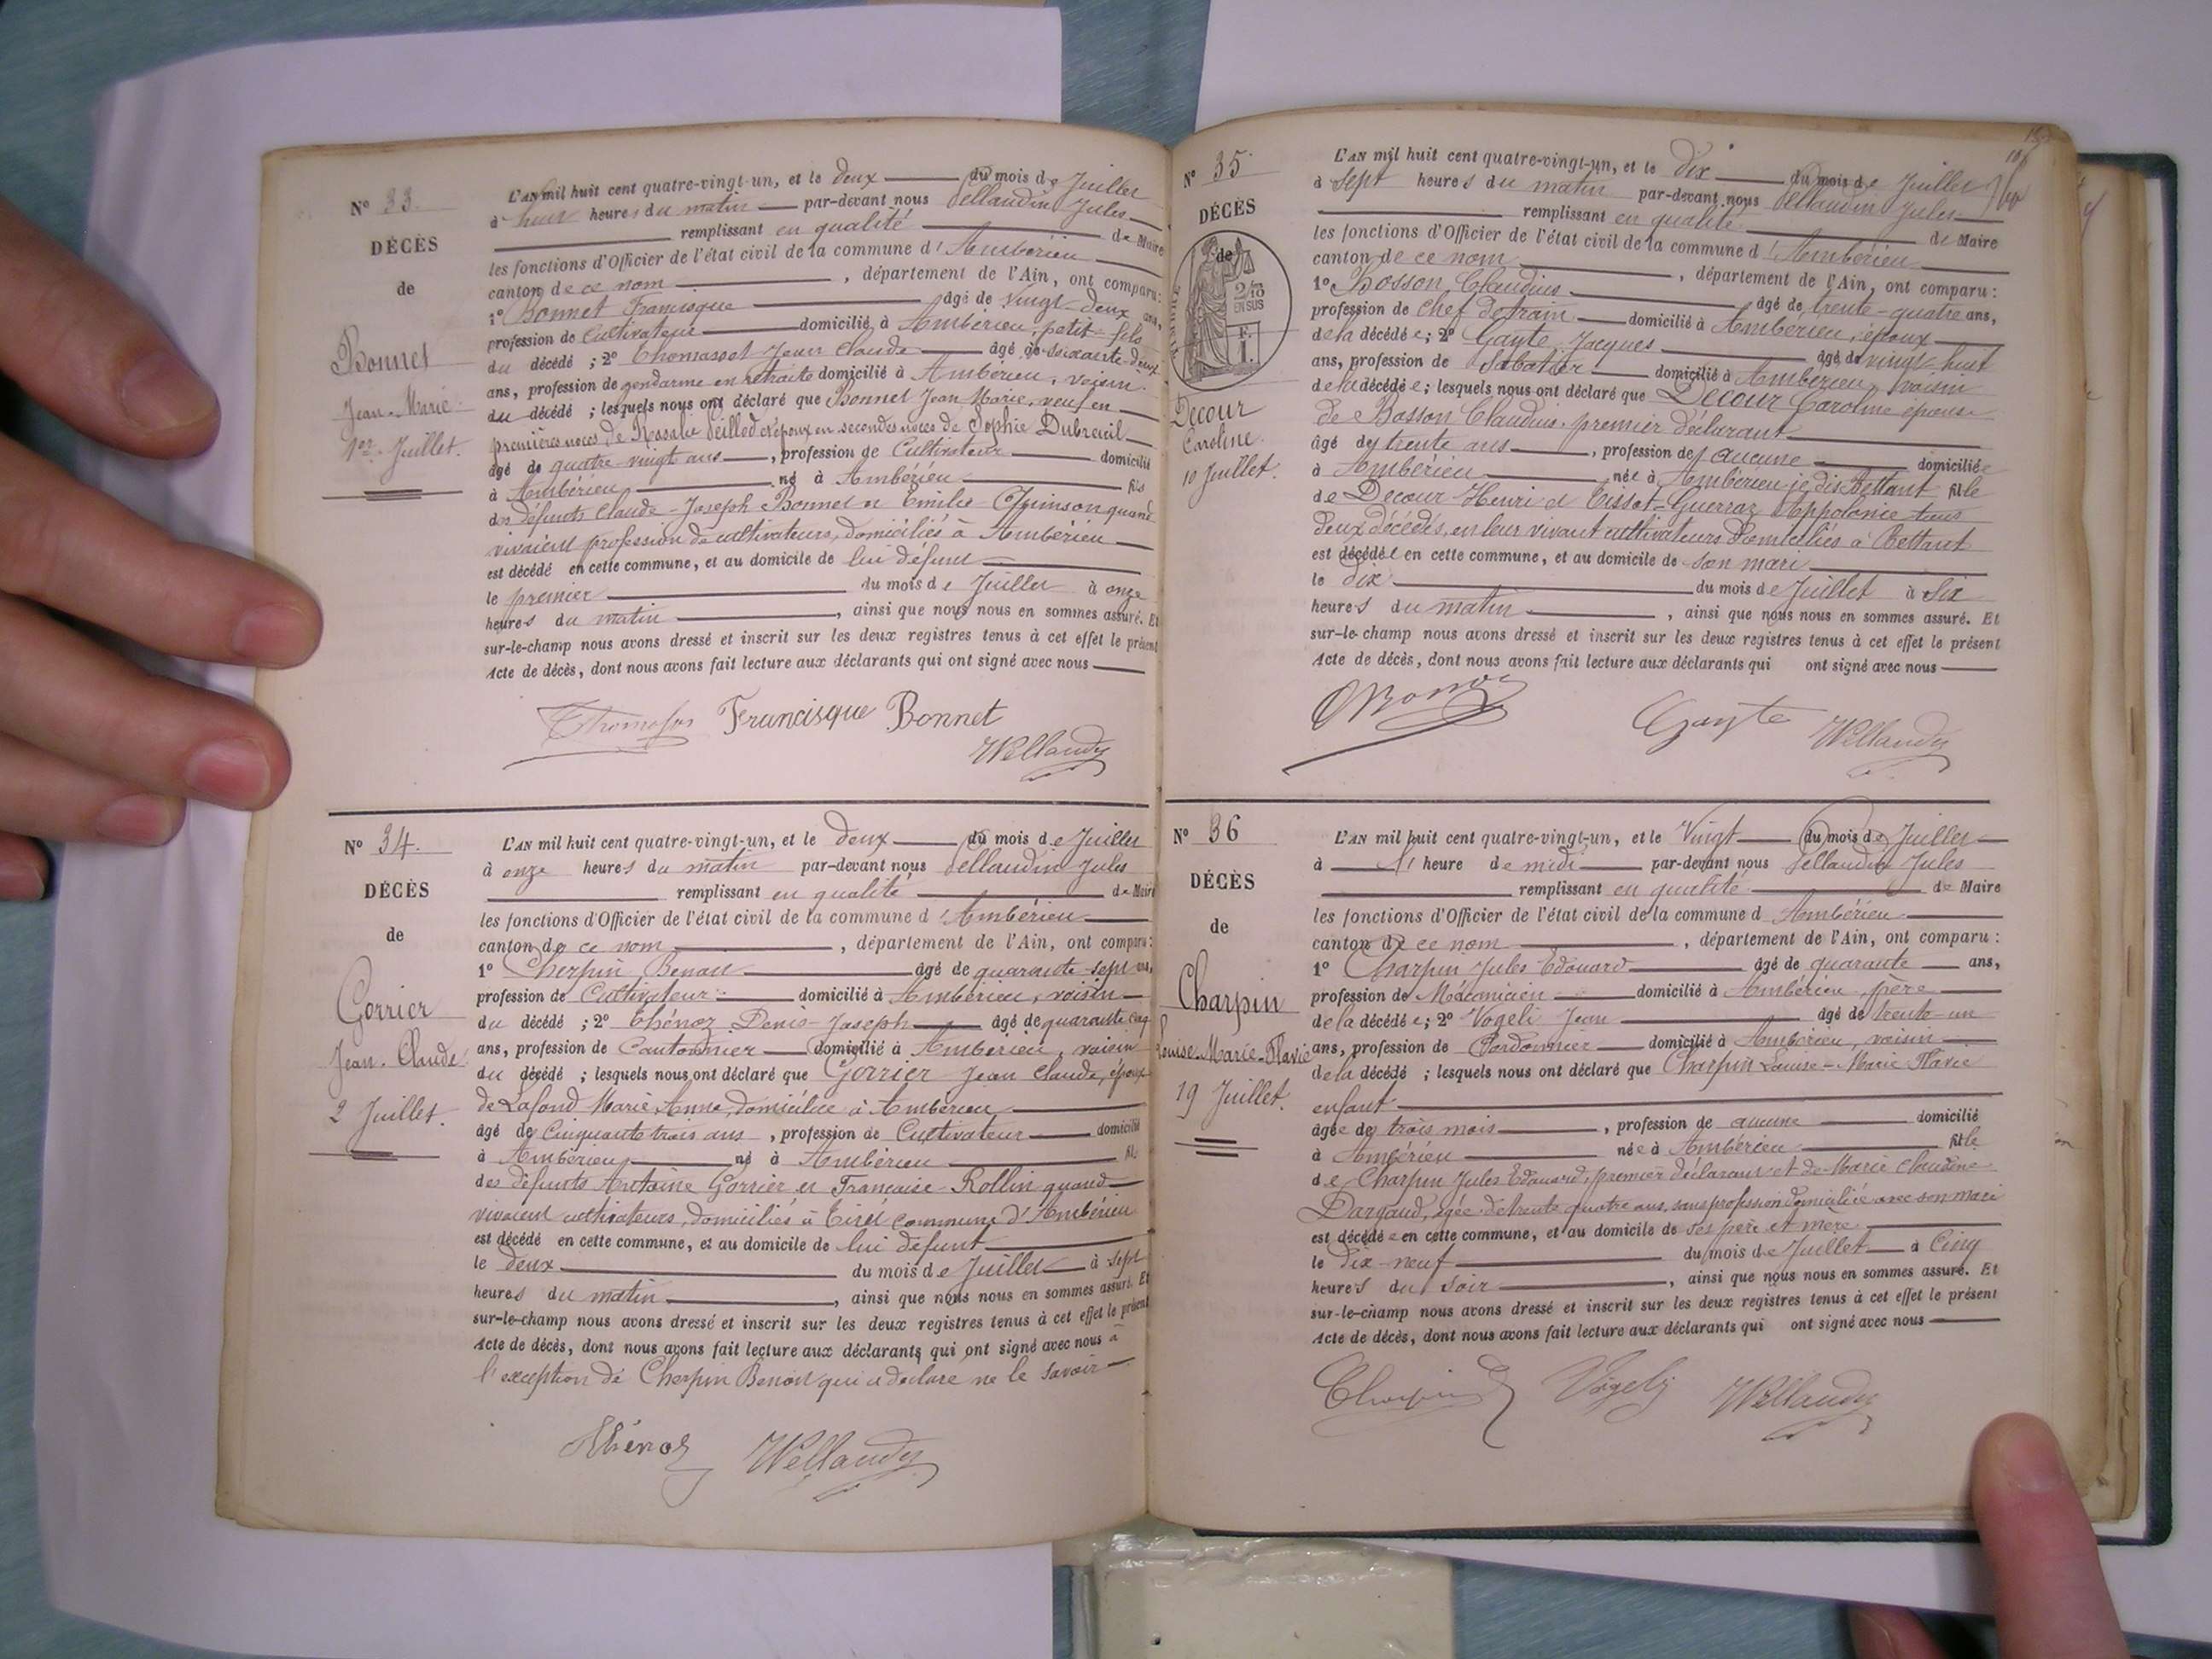 N° 33.
DÉCÈS
de
Bonnet
Jean-Marie
1er Juillet.
L'AN mil huit cent quatre-vingt-un, et le deux du mois de Juillet
à huit heures du matin par-devant nous Pellaudin Jules
remplissant en qualité de Maire
les fonctions d'Officier de l'état civil de la commune d'Ambérieu
canton de ce nom, département de l'Ain, ont comparu :
1° Bonnet Francisque âgé de vingt-deux ans,
profession de Cultivateur domicilié à Ambérieu, petit-fils
du décédé ; 2° Thomasset Jean Claude âgé de soixante-deux
ans, profession de gendarme en retraite domicilié à Ambérieu, voisin
du décédé ; lesquels nous ont déclaré que Bonnet Jean Marie, veuf en
premières noces de Rosalie et époux en secondes noces de Sophie Dubreuil
âgé de quatre vingt ans, profession de Cultivateur domicilié
à Ambérieu né à Ambérieu fils
des défunts Claude-Joseph Bonnet et Emilie quand
vivaient profession de cultivateurs, domiciliés à Ambérieu
est décédé en cette commune, et au domicile de lui défunt
le premier du mois de Juillet à onze
heures du matin, ainsi que nous nous en sommes assuré. Et
sur-le-champ nous avons dressé et inscrit sur les deux registres tenus à cet effet le présent
Acte de décès, dont nous avons fait lecture aux déclarants qui ont signé avec nous
Francisque Bonnet
N° 34.
DÉCÈS
de
Gorrier
Jean-Claude
2 Juillet.
L'AN mil huit cent quatre-vingt-un, et le deux du mois de Juillet
à onze heures du matin par-devant nous Pellaudin Jules
remplissant en qualité de Maire
les fonctions d'Officier de l'état civil de la commune d'Ambérieu
canton de ce nom, département de l'Ain, ont comparu :
1° Cherpin Benoit âgé de quarante-sept ans,
profession de Cultivateur domicilié à Ambérieu, voisin
du décédé ; 2° Thénoz Denis-Joseph âgé de quarante cinq
ans, profession de Cantonnier domicilié à Ambérieu, voisin
du décédé ; lesquels nous ont déclaré que Gorrier Jean Claude, époux
de Lafond Marie Anne, domiciliée à Ambérieu
âgé de Cinquante trois ans, profession de Cultivateur domicilié
à Ambérieu né à Ambérieu fils
des défunts Antoine Gorrier et Françoise Rollin quand
vivaient cultivateurs, domiciliés à Tiret commune d'Ambérieu
est décédé en cette commune, et au domicile de lui défunt
le deux du mois de Juillet à sept
heures du matin, ainsi que nous nous en sommes assuré. Et
sur-le-champ nous avons dressé et inscrit sur les deux registres tenus à cet effet le présent
Acte de décès, dont nous avons fait lecture aux déclarants qui ont signé avec nous à
l'exception de Cherpin Benoit qui a déclaré ne le savoir
Thénoz
N° 35
DÉCÈS
de
2/10
EN SUS
F.
1.
Decour
Caroline
10 Juillet.
L'AN mil huit cent quatre-vingt-un, et le dix du mois de Juillet
à sept heures du matin par-devant nous Pellaudin Jules
remplissant en qualité de Maire
les fonctions d'Officier de l'état civil de la commune d'Ambérieu
canton de ce nom, département de l'Ain, ont comparu :
1° Bosson Claudius âgé de trente-quatre ans,
profession de chef de train domicilié à Ambérieu, époux
de la décédée ; 2° Gayte Jacques âgé de vingt huit
ans, profession de Sabotier domicilié à Ambérieu, voisin
de la décédée ; lesquels nous ont déclaré que Decour Caroline épouse
de Bosson Claudius, premier déclarant
âgé de trente ans, profession de aucune domiciliée
à Ambérieu née à Ambérieu je dis Bettant fille
de Decour Henri et Tissot-Guerraz Appolonie tous
deux décédés, en leur vivant cultivateurs domiciliés à Bettant
est décédée en cette commune, et au domicile de son mari
le dix du mois de Juillet à six
heures du matin, ainsi que nous nous en sommes assuré. Et
sur-le-champ nous avons dressé et inscrit sur les deux registres tenus à cet effet le présent
Acte de décès, dont nous avons fait lecture aux déclarants qui ont signé avec nous
Gayte
N° 36
DÉCÈS
de
Charpin
Louise-Marie-Flavie
19 Juillet.
L'AN mil huit cent quatre-vingt-un, et le Vingt du mois de Juillet
à l' heure de midi par-devant nous Pellaudin Jules
remplissant en qualité de Maire
les fonctions d'Officier de l'état civil de la commune d Ambérieu
canton de ce nom, département de l'Ain, ont comparu :
1° Charpin Jules Edouard âgé de quarante ans,
profession de Mécanicien domicilié à Ambérieu, père
de la décédée ; 2° Vogeli Jean âgé de trente-un
ans, profession de Cordonnier domicilié à Ambérieu, voisin
de la décédé ; lesquels nous ont déclaré que Charpin Louise-Marie Flavie
enfant
âgée de trois mois, profession de aucune domicilié
à Ambérieu née à Ambérieu fille
de Charpin Jules Edouard, premier déclarant et de Marie Claudine
Dargaud, âgée de trente quatre ans, sans profession domiciliée avec son mari
est décédée en cette commune, et au domicile de ses père et mère
le dix-neuf du mois de Juillet à Cinq
heures du soir, ainsi que nous nous en sommes assuré. Et
sur-le-champ nous avons dressé et inscrit sur les deux registres tenus à cet effet le présent
Acte de décès, dont nous avons fait lecture aux déclarants qui ont signé avec nous
Charpin Vögeli